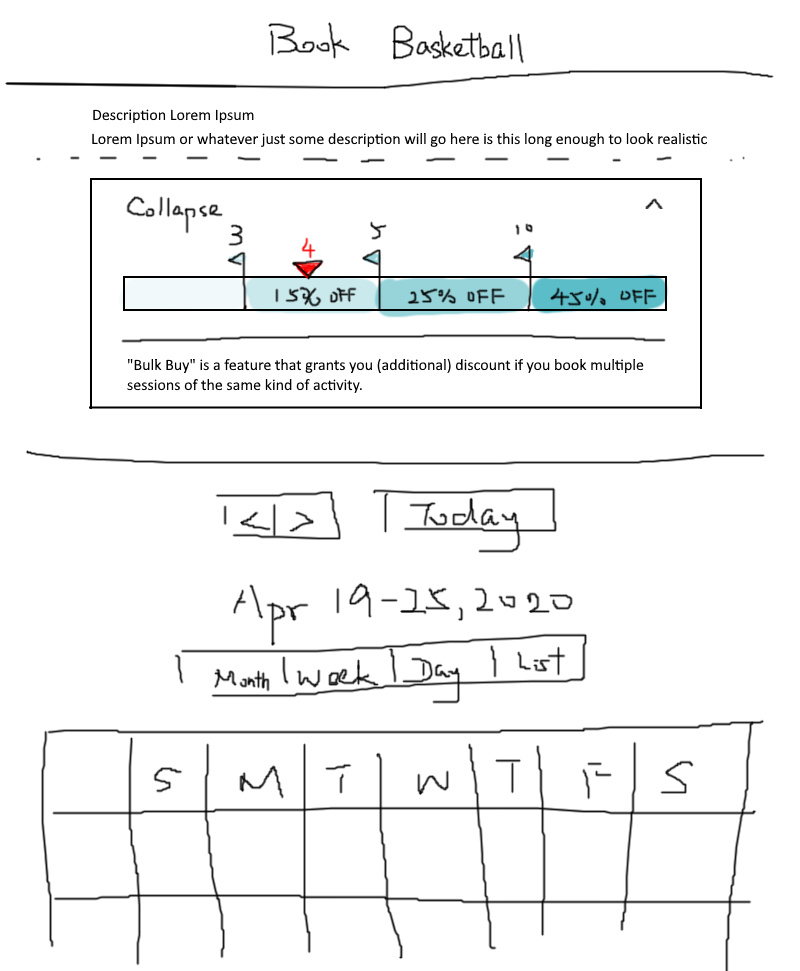 Book Basketball
Description Lorem Ipsum
Lorem Ipsum or whatever just some description will go here is this long enough to look realistic
Collapse ^
3 4 5 10
15% OFF 25% OFF 45% OFF
"Bulk Buy" is a feature that grants you (additional) discount if you book multiple
sessions of the same kind of activity.
< | > Today
Apr 19-25, 2020
Month | Week | Day | List
S M T W T F S